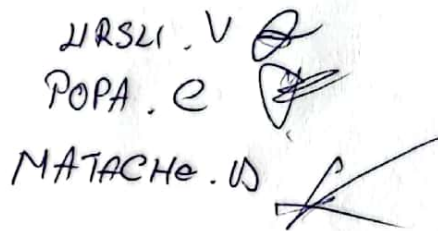 URSU. V
POPA. C
MATACHE. D